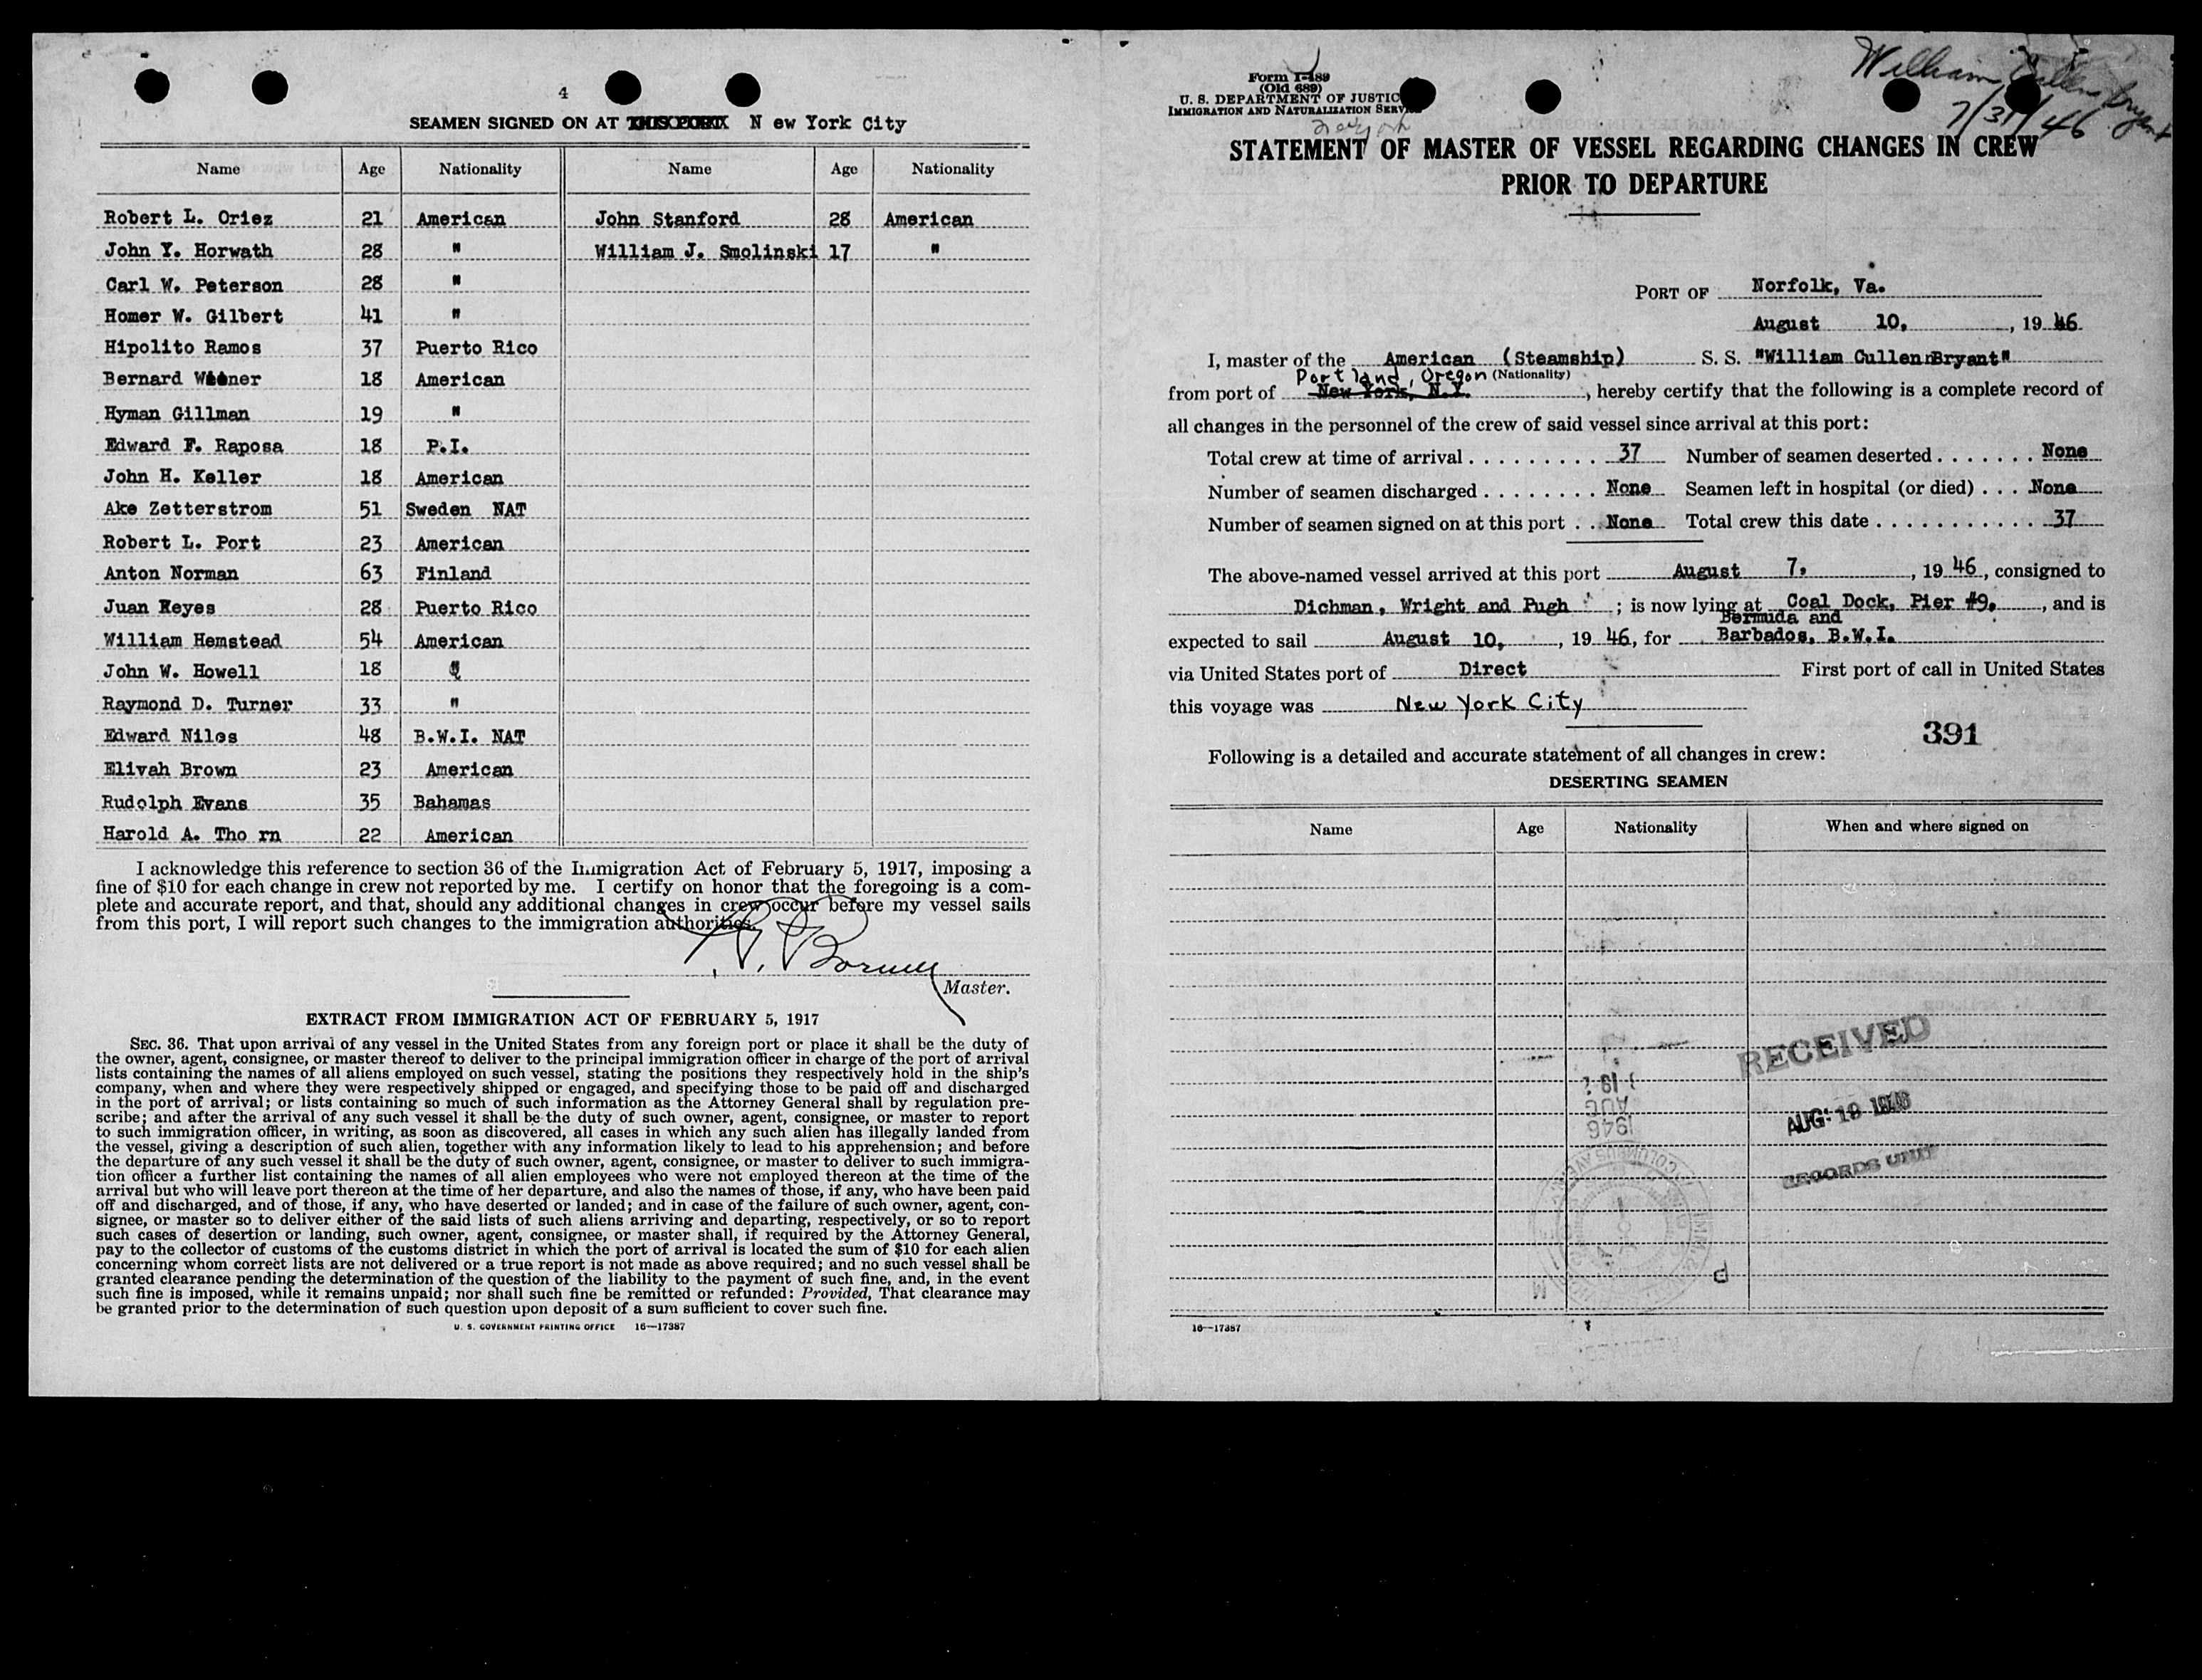 4
SEAMEN SIGNED ON AT New York City
Name Age Nationality Name Age Nationality
Robert L. Oriez 21 American John Stanford 28 American
John Y. Horwath 28 " William J. Smolinski 17 "
Carl W. Peterson 28 "
Homer W. Gilbert 41 "
Hipolito Ramos 37 Puerto Rico
Bernard 18 American
Hyman Gillman 19 "
Edward F. Raposa 18 P.I.
John H. Keller 18 American
Ake Zetterstrom 51 Sweden NAT
Robert L. Port 23 American
Anton Norman 63 Finland
Juan Reyes 28 Puerto Rico
William Hemstead 54 American
John W. Howell 18 "
Raymond D. Turner 33 "
Edward Niles 48 B.W.I. NAT
Elivah Brown 23 American
Rudolph Evans 35 Bahamas
Harold A. Tho rn 22 American
I acknowledge this reference to section 36 of the Immigration Act of February 5, 1917, imposing a
fine of $10 for each change in crew not reported by me. I certify on honor that the foregoing is a com-
plete and accurate report, and that, should any additional changes in crew occur before my vessel sails
from this port, I will report such changes to the immigration authorities.
Master.
EXTRACT FROM IMMIGRATION ACT OF FEBRUARY 5, 1917
SEC. 36. That upon arrival of any vessel in the United States from any foreign port or place it shall be the duty of
the owner, agent, consignee, or master thereof to deliver to the principal immigration officer in charge of the port of arrival
lists containing the names of all aliens employed on such vessel, stating the positions they respectively hold in the ship's
company, when and where they were respectively shipped or engaged, and specifying those to be paid off and discharged
in the port of arrival; or lists containing so much of such information as the Attorney General shall by regulation pre-
scribe; and after the arrival of any such vessel it shall be the duty of such owner, agent, consignee, or master to report
to such immigration officer, in writing, as soon as discovered, all cases in which any such alien has illegally landed from
the vessel, giving a description of such alien, together with any information likely to lead to his apprehension; and before
the departure of any such vessel it shall be the duty of such owner, agent, consignee, or master to deliver to such immigra-
tion officer a further list containing the names of all alien employees who were not employed thereon at the time of the
arrival but who will leave port thereon at the time of her departure, and also the names of those, if any, who have been paid
off and discharged, and of those, if any, who have deserted or landed; and in case of the failure of such owner, agent, con-
signee, or master so to deliver either of the said lists of such aliens arriving and departing, respectively, or so to report
such cases of desertion or landing, such owner, agent, consignee, or master shall, if required by the Attorney General,
pay to the collector of customs of the customs district in which the port of arrival is located the sum of $10 for each alien
concerning whom correct lists are not delivered or a true report is not made as above required; and no such vessel shall be
granted clearance pending the determination of the question of the liability to the payment of such fine, and, in the event
such fine is imposed, while it remains unpaid; nor shall such fine be remitted or refunded: Provided, That clearance may
be granted prior to the determination of such question upon deposit of a sum sufficient to cover such fine.
U. S. GOVERNMENT PRINTING OFFICE 16—17387
William Cullen Bryant
7/31/46
Form I-489
(Old 689)
U. S. DEPARTMENT OF JUSTICE
IMMIGRATION AND NATURALIZATION SERVICE
New York
STATEMENT OF MASTER OF VESSEL REGARDING CHANGES IN CREW
PRIOR TO DEPARTURE
PORT OF Norfolk, Va.
August 10, , 19 46
I, master of the American (Steamship) S. S. "William Cullen Bryant"
Portland, Oregon (Nationality)
from port of New York, N.Y. , hereby certify that the following is a complete record of
all changes in the personnel of the crew of said vessel since arrival at this port:
Total crew at time of arrival . . . . . . . . . 37 Number of seamen deserted . . . . . . . None
Number of seamen discharged . . . . . . . . None Seamen left in hospital (or died) . . . None
Number of seamen signed on at this port . . None Total crew this date . . . . . . . . . . . . 37
The above-named vessel arrived at this port August 7, , 19 46, consigned to
Dichman, Wright and Pugh ; is now lying at Coal Dock, Pier #9, , and is
Bermuda and
expected to sail August 10, , 19 46, for Barbados, B.W.I.
via United States port of Direct First port of call in United States
this voyage was New York City
391
Following is a detailed and accurate statement of all changes in crew:
DESERTING SEAMEN
Name Age Nationality When and where signed on
RECEIVED
AUG 19 1946
RECORDS UNIT
16—17387